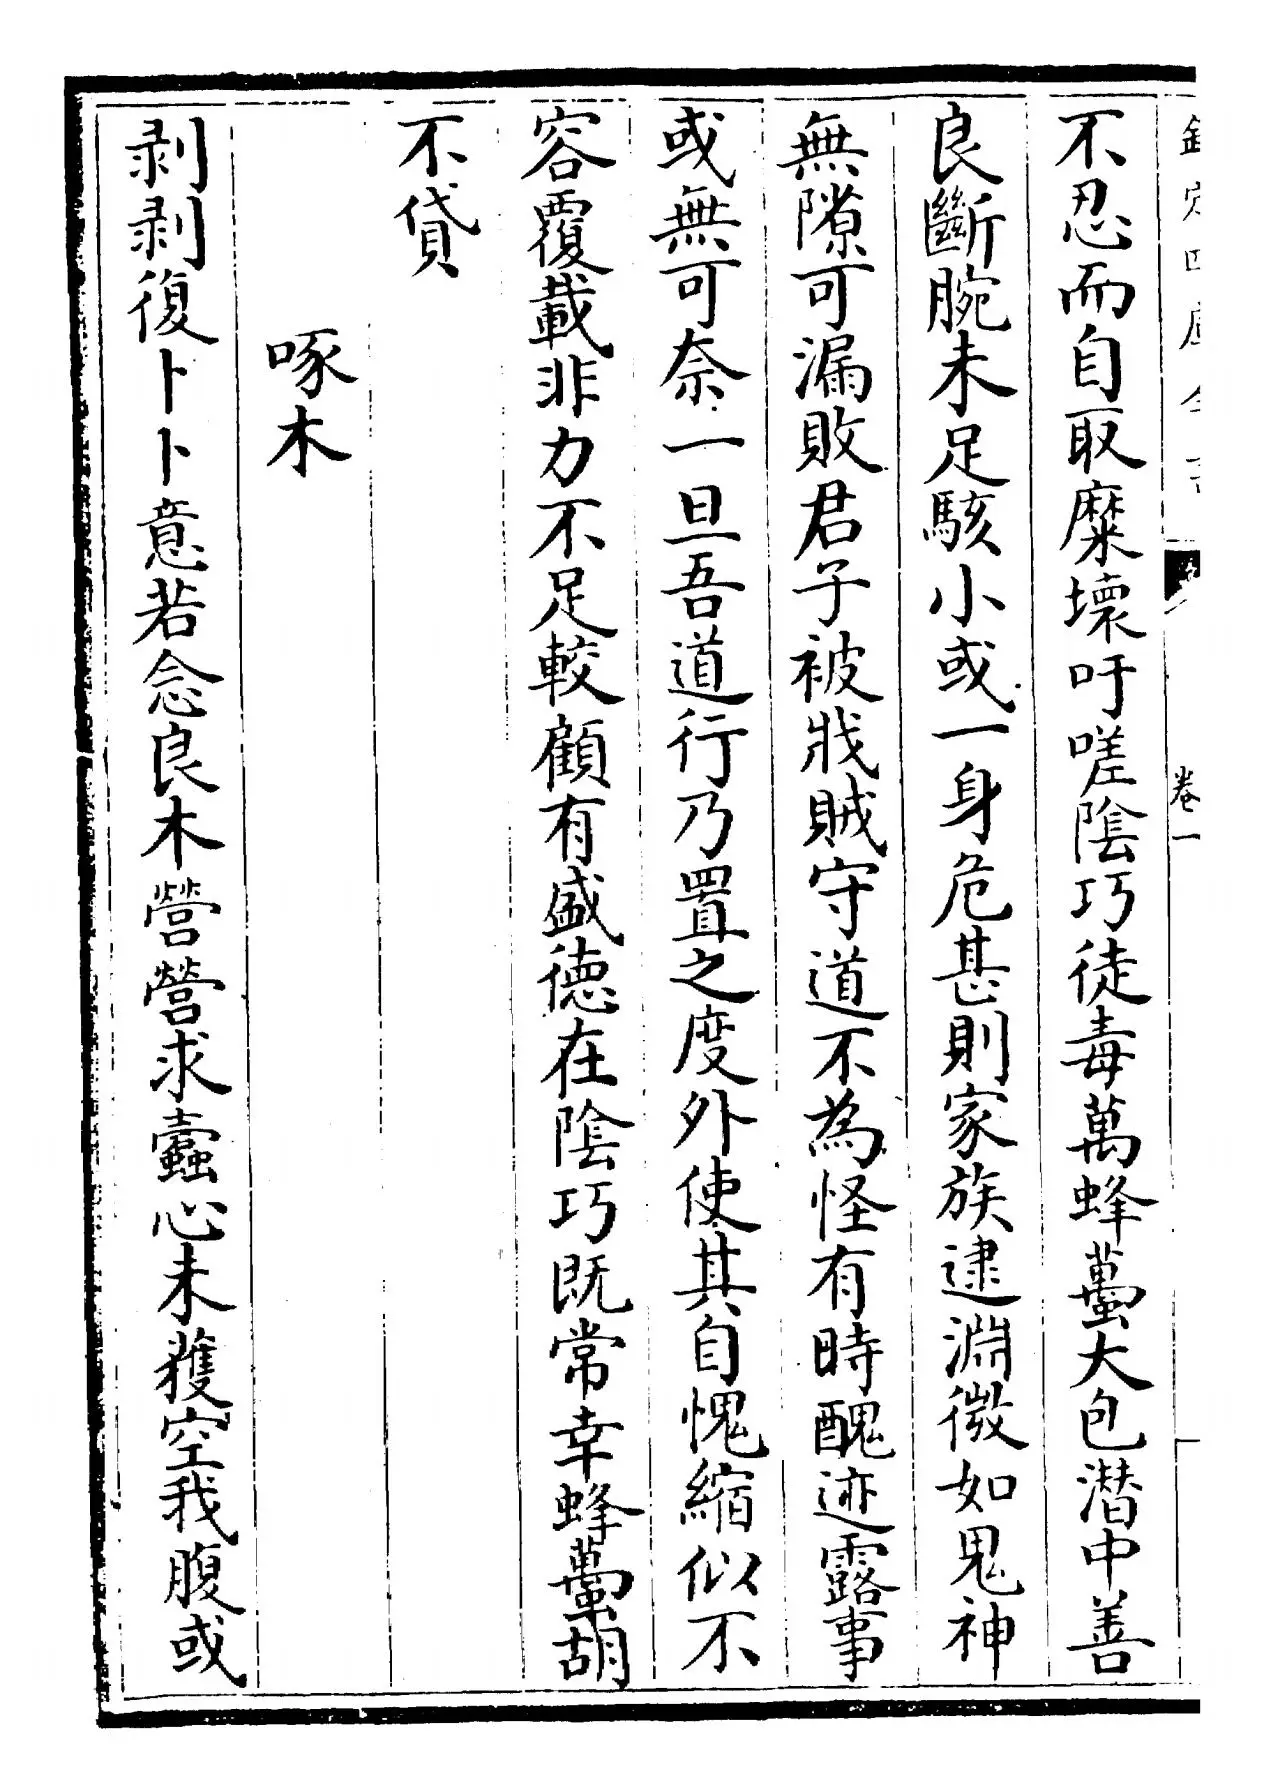 欽定四庫全書
卷一
不忍而自取糜壞吁嗟隂巧徒毒萬蜂蠆大包潛中善
良斷腕未足駭小或一身危甚則家族逮淵微如鬼神
無隙可漏敗君子被戕賊守道不為怪有時醜迹露事
或無可奈一旦吾道行乃置之度外使其自愧縮似不
容覆載非力不足較顧有盛德在隂巧既常幸蜂蠆胡
不貸
啄木
剥剥復卜卜意若念良木營營求蠹心未獲空我腹或